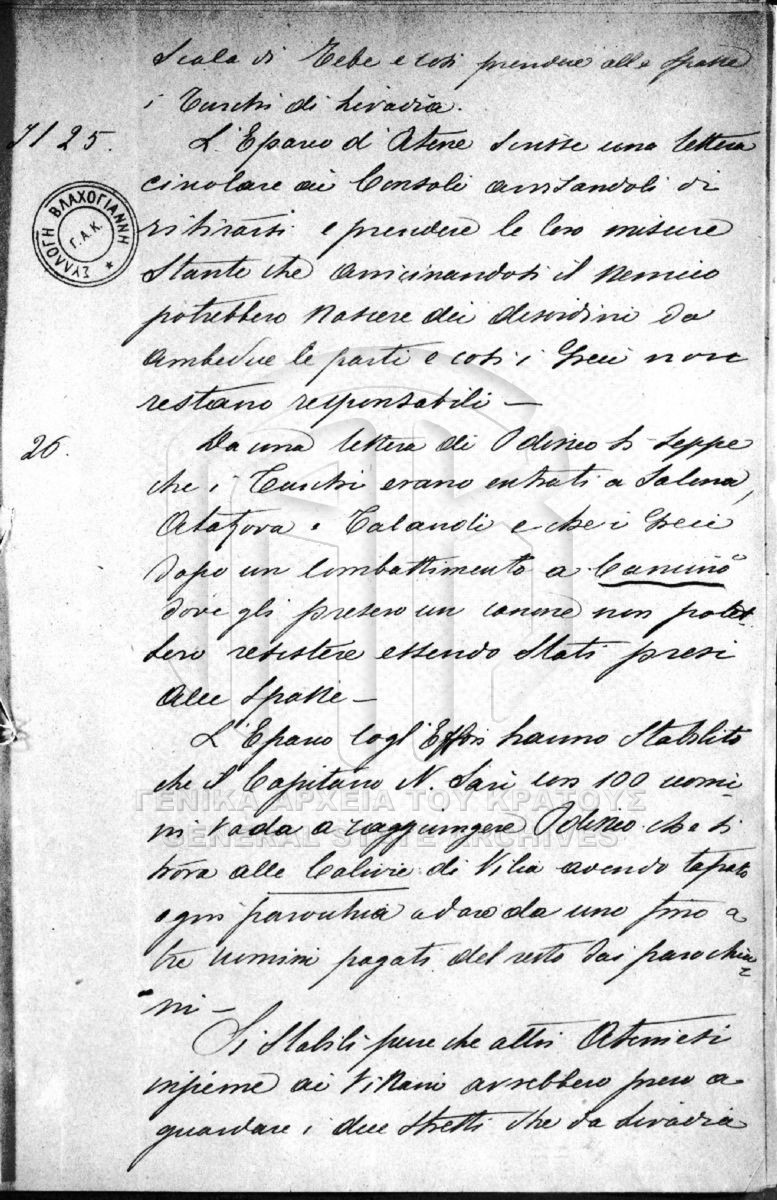 Scala di Tebe e così prendere alle spalle
i Turchi di Livadia.
Il 25. L'Eparco d'Atene scrisse una lettera
circolare ai Consoli avvisandoli di
ritirarsi e prendere le loro misure
stante che avvicinandosi il nemico
potrebbero nascere dei disordini da
ambedue le parti e così i Greci non
restano responsabili —
26. Da una lettera di Odisseo si seppe
che i Turchi erano entrati a Salona,
e Talandi e che i Greci
dopo un combattimento a
dove gli presero un canone non potet-
tero resistere essendo stati presi
alle spalle —
L'Eparco cogl'Efori hanno stabilito
che il Capitano N. Sari con 100 uomi-
ni vada a raggiungere Odisseo che si
trova alle Calivie di Vilia avendo
ogni parochia a dare da uno fino a
tre uomini pagati del resto dai parochia-
ni —
Si stabilì pure che altri Ateniesi
insieme ai Villani avrebbero preso a
guardare i due stretti che da Livadia
ΣΥΛΛΟΓΗ ΒΛΑΧΟΓΙΑΝΝΗ
Γ.Α.Κ.
ΓΕΝΙΚΑ ΑΡΧΕΙΑ ΤΟΥ ΚΡΑΤΟΥΣ
GENERAL STATE ARCHIVES